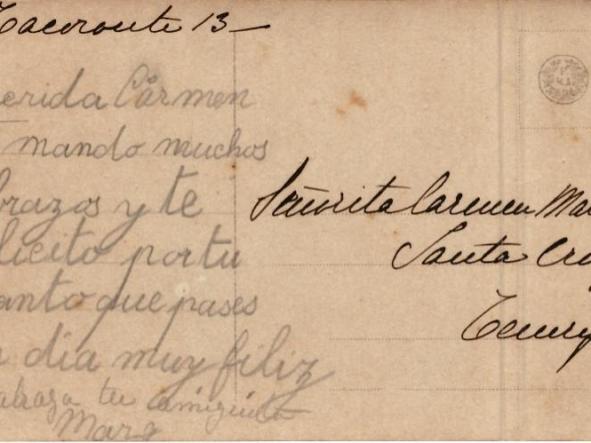 Tacoronte 13—
erida Cármen
mando muchos
brazos y te
licito por tu
anto que pases
dia muy filiz
abraza tu amiguita
Señorita Carmen Mar
Santa Cru